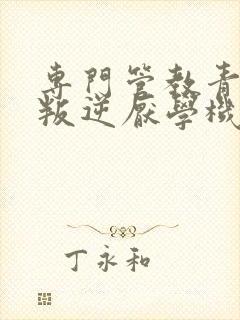 專門管教青
叛逆厭學機
丁永和